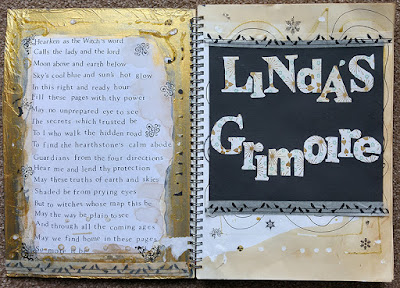 Hearken as the Witch's word
Calls the lady and the lord
Moon above and earth below
Sky's cool blue and sunk hot glow
In this right and ready hour
Fill these pages with thy power
May no unprepared eye to see
The secrets which trusted be
To I who walk the hidden road
To find the hearthstone's calm abode
Guardians from the four directions
Hear me and lend thy protection
May these truths of earth and skies
Shaded be from prying eyes
But to witches whose map this be
May the way be plain to see
And through all the coming ages
May we find home in these pages
LiNdA'S
Grimoire